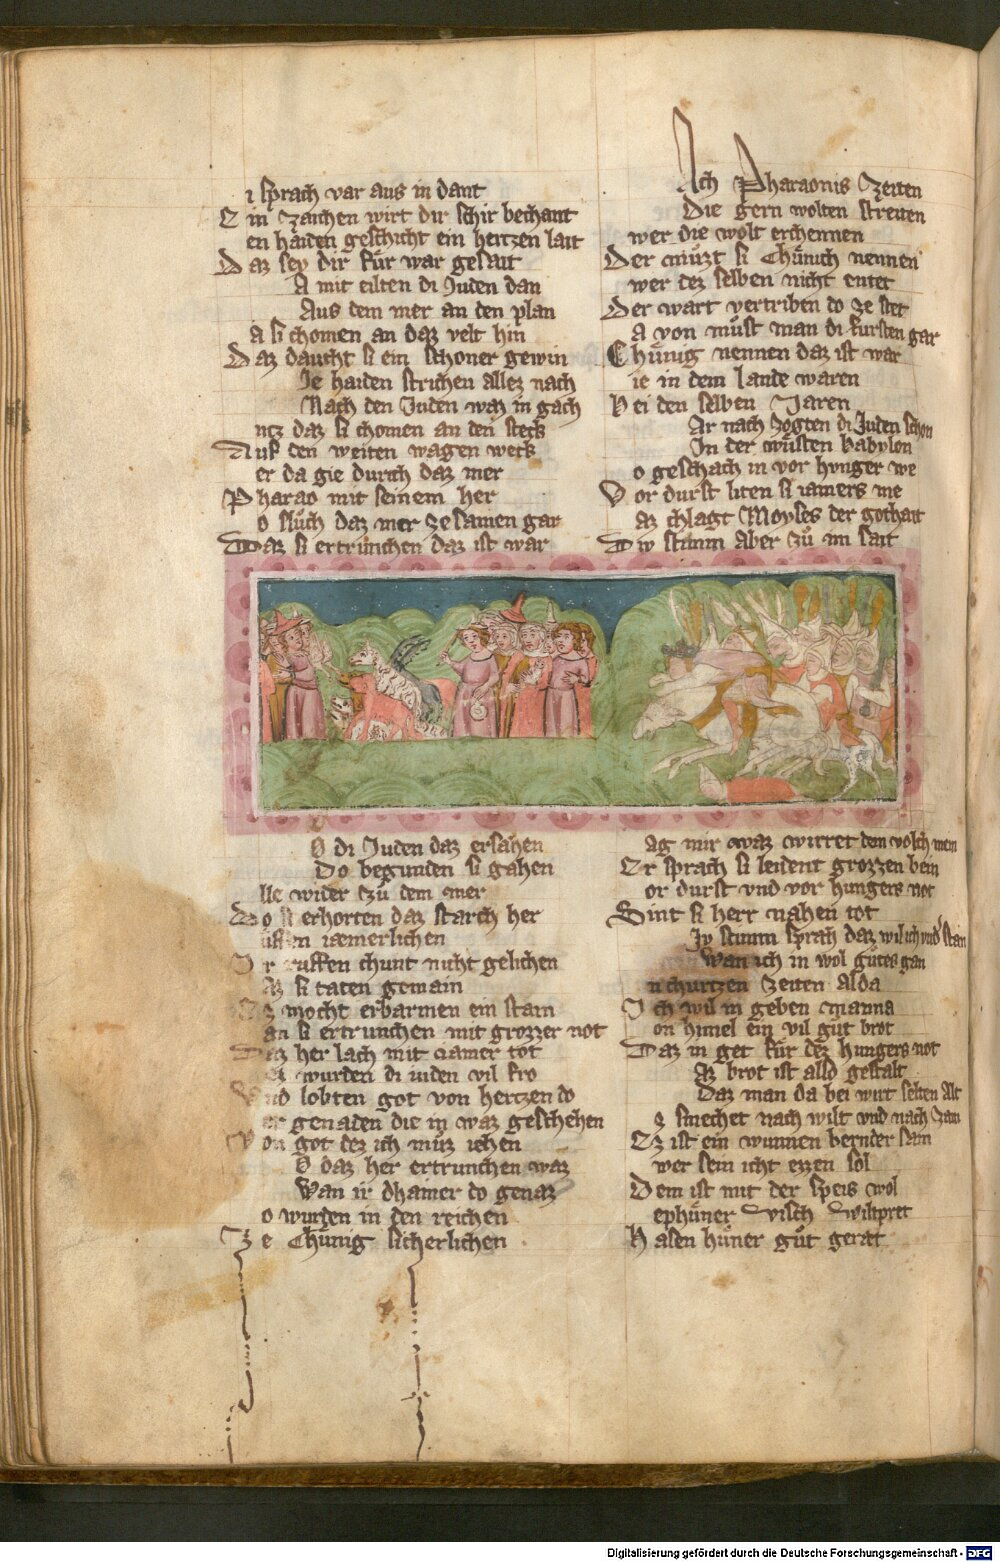 i sprach var aus in dant
E in zaichen wirt dir schir bechant
en haiden geschicht ein hertzen lait
D az sey dir für war gesait
A mit eilten di Juden dan
Aus dem mer an den plan
A si chomen an daz velt hin
D az daucht si ein schoner gewin
Je haiden strichen allez nach
Nach den Juden waz in gach
ntz daz si chomen an den steck
A uf den weiten wagen weck
er da gie durch daz mer
P harao mit seinem her
o sluch daz mer ze samen gar
D az si ertrunchen daz ist war
O di Juden daz ersahen
Do begunden si gahen
lle wider zu dem mer
D o si erhorten daz starch her
üffen iaemerlichen
I r ruffen chunt nicht gelichen
az si taten gemain
Ez mocht erbarmen ein stain
an si ertrunchen mit grozzer not
D az her lach mit iamer tot
Ez wurden di iuden vil fro
V nd lobten got von hertzen do
er genaden die in waz geschehen
V on got dez ich muz iehen
O daz her ertrunchen waz
Wan ir dhainer do genaz
o wurden in den reichen
Z e Chünig sicherlichen
Ach Pharaonis Zeiten
Die gern wolten streiten
wer die wolt erchennen
Der muzt si Chünich nennen
wer dez selben nicht entet
Der wart vertriben do ze stet
a von must man di fursten gar
Chünig nennen daz ist war
ie in dem lande waren
B ei den selben Jaren
Ar nach zogten di Juden schon
In der wüsten babylon
o geschach in vor hvnger we
V or durst liten si iamers me
az chlagt Moyses der gothait
D iv stimm aber zu im sait
ag mir waz wirret dem volch mein
Er sprach si leident grozzen pein
or durst vnd vor hungers not
Sint si herr nahen tot
Jv stimm sprah daz wil ich vnd'stan
Wan ich in wol gutes gan
n churtzen zeiten alda
I ch wil in geben manna
on himel ein vil gut brot
D az in get für dez hungers not
az brot ist also gestalt
Daz man da bei wirt selten alt
z smechet nach wilt vnd nach zam
Ez ist ein wunnen bernder sam
wer sein icht ezzen sol
Dem ist mit der speis wol
ephüner visch wiltpret
H asen hüner gut gerat
Digitalisierung gefördert durch die Deutsche Forschungsgemeinschaft - DFG